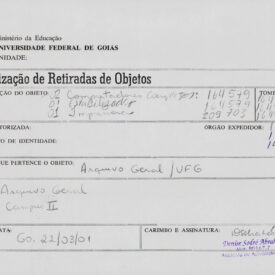 Ministério da Educação
UNIVERSIDADE FEDERAL DE GOIÁS
UNIDADE:
ização de Retiradas de Objetos
ÇÃO DO OBJETO: 2 Computadores 164579 TOMB
01 Estabilizador 164579 164
01 Impressora 209703 164
TORIZADA: ÓRGÃO EXPEDIDOR:
TO DE IDENTIDADE:
QUE PERTENCE O OBJETO: Arquivo Geral / UFG
Arquivo Geral
Campus II
ATA: CARIMBO E ASSINATURA:
Go. 22/03/01 Denise Sodré